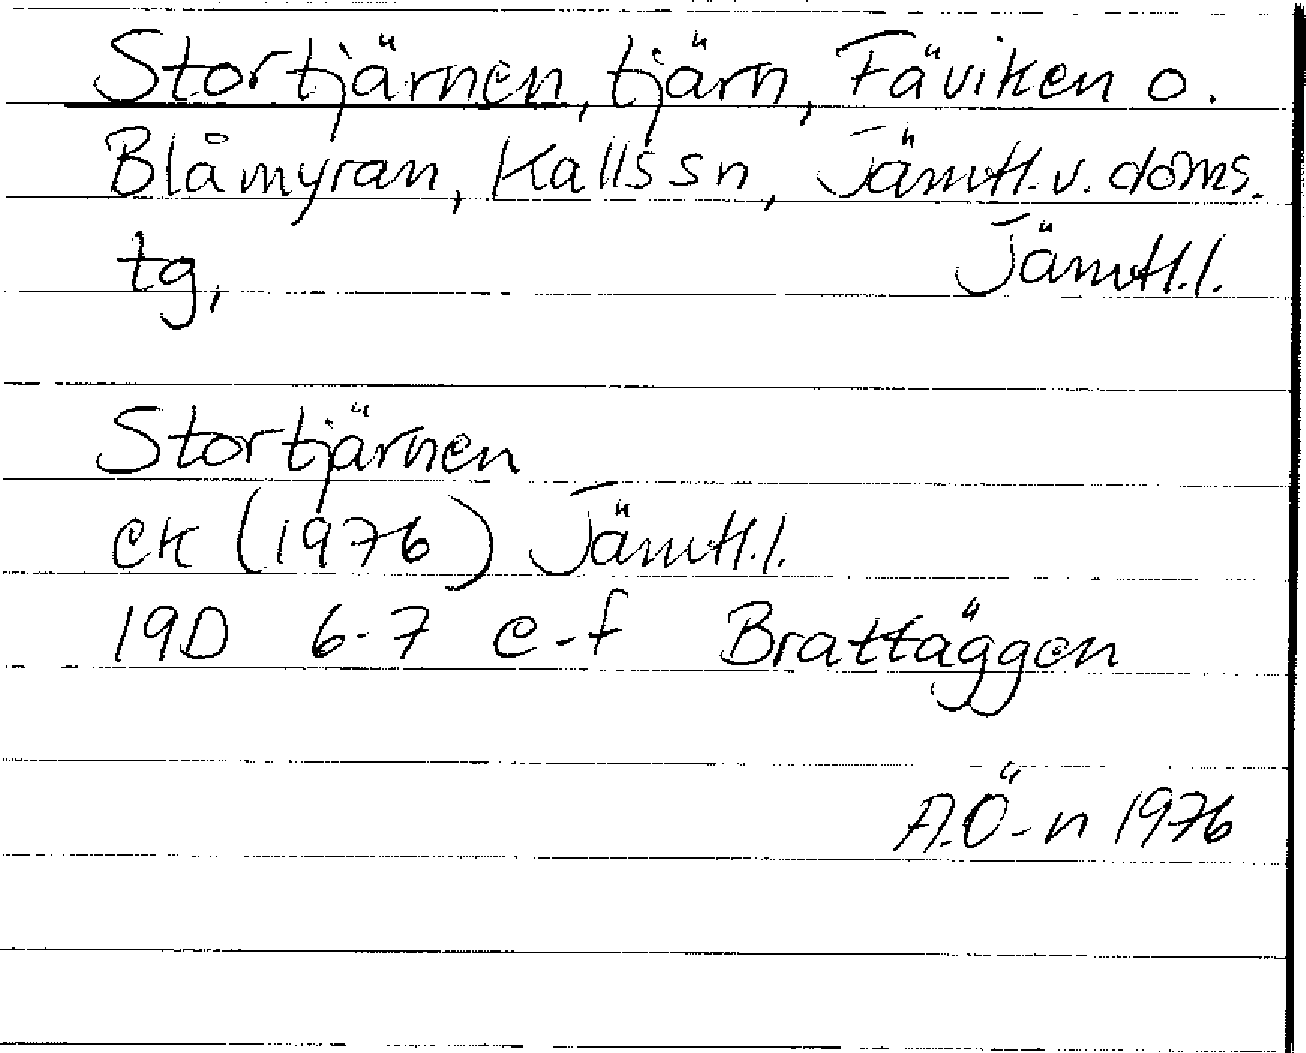 Stortjärnen, tjärn, Fäviken o.
Blåmyran, Kalls sn, Jämtl. v. doms.
tg, Jämtl. l.
Stortjärnen
ek (1976) Jämtl. l.
19D 6-7 e-f Brattäggen
A.Ö-n 1976